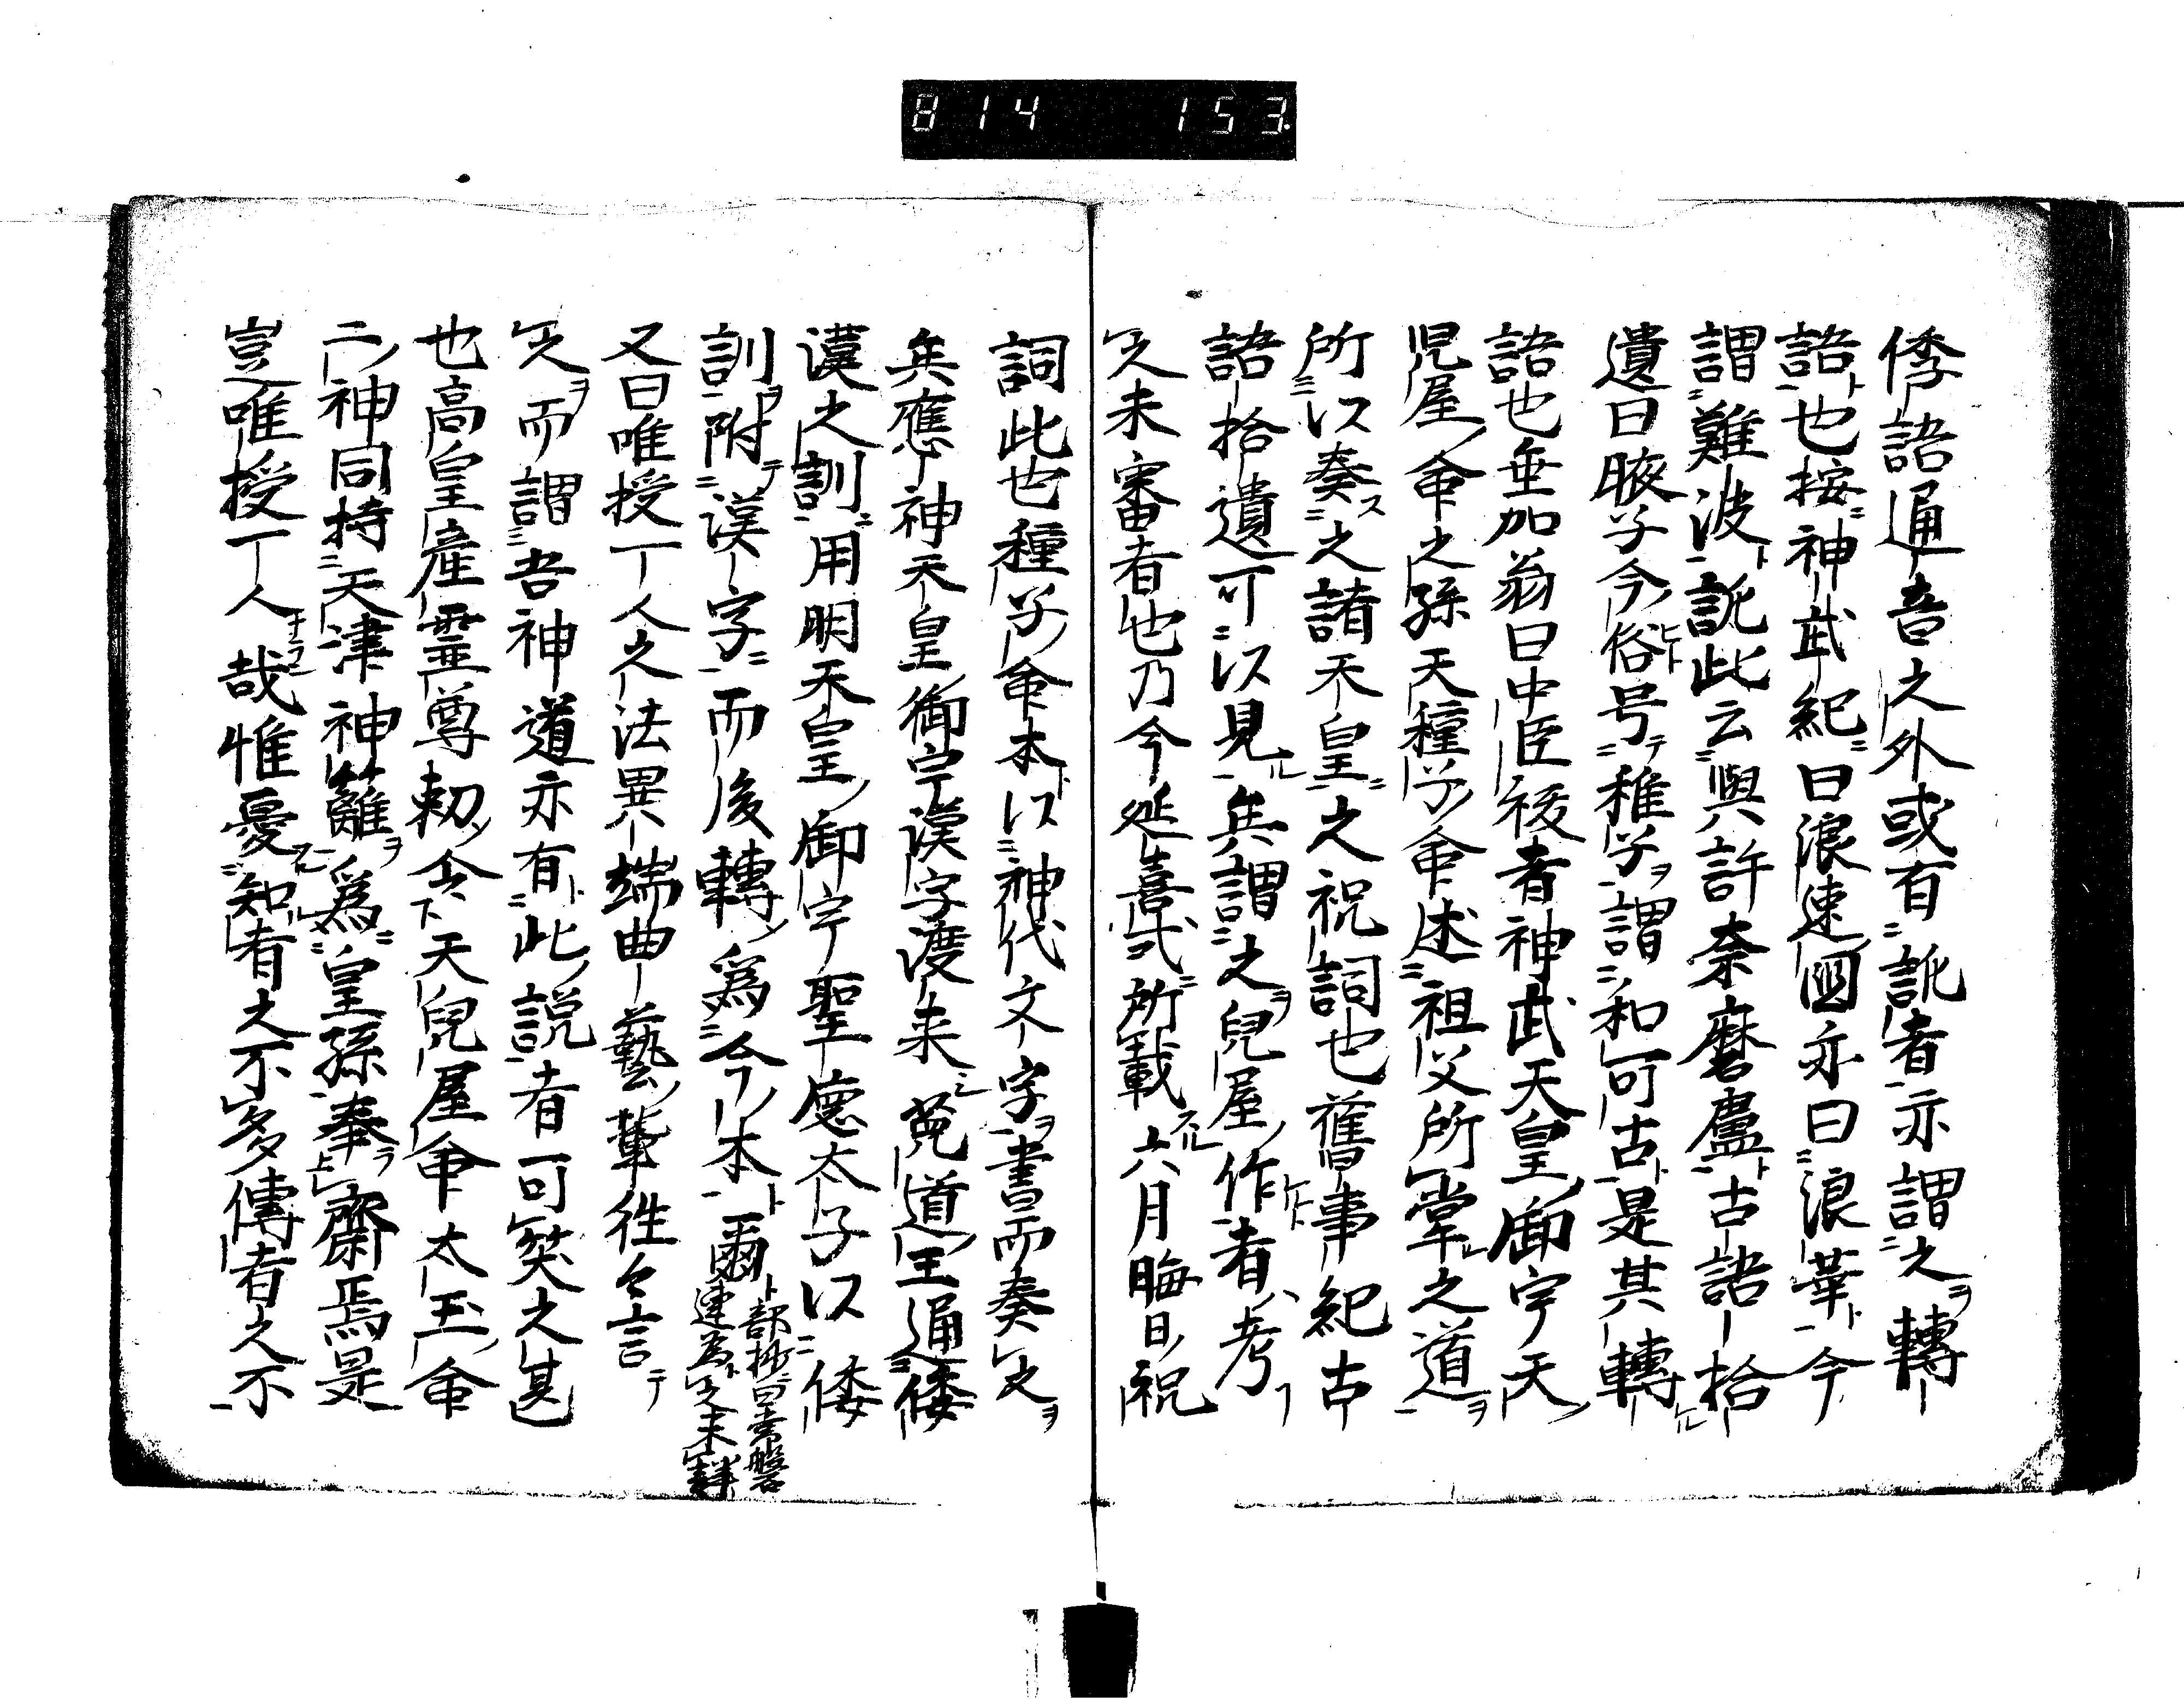 814 153.
倭語通音之外或有訛者亦謂之轉
語也按神武紀曰浪速國亦曰浪華今
謂難波訛此云與許奈磨盧古語拾
遺曰腋子今俗号稚子謂和可古是其轉
語也垂加翁曰中臣祓者神武天皇御宇天
児屋命之孫天種子命述祖父所掌之道
所以奏之諸天皇之祝詞也舊事紀古
語拾遺可以見矣謂之兒屋作者考
之未審者也乃今延喜式所載六月晦日祝
詞此也種子命本以神代文字書而奏之
矣應神天皇御宇漢字渡来菟道王通倭
漢之訓用明天皇御宇聖德太子以倭
訓附漢字而後轉爲今本爾
卜部抄曰常磐
連為之未詳
又曰唯授一人之法異端曲藝輩徃々言
之而謂吾神道亦有此説者可笑之甚
也高皇産霊尊勅令天兒屋命太玉命
二神同持天津神籬爲皇孫奉齋焉是
豈唯授一人哉惟憂知有之不多傳者之不